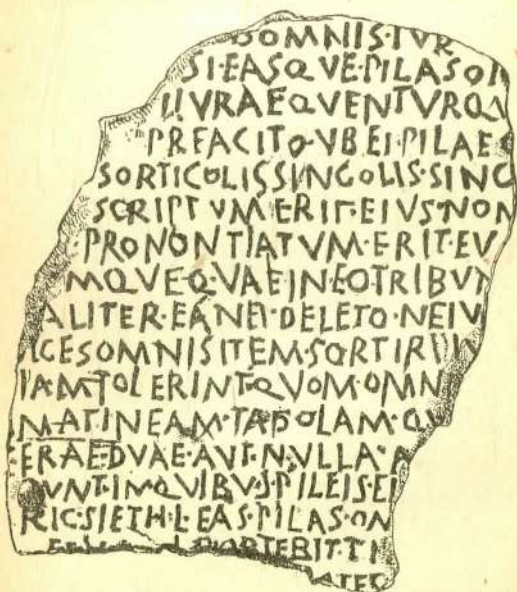 OMNIS·IVR
SI·EASQVE·PILAS
VRAEQVENTVRQV
PR FACITO·VBEI·PILAE
SORTICOLIS SINGOLIS·SING
SCRIPTVM ERIT·EIVS·NON
PRONONTIATVM·ERIT·EV
MQVE·QVAE·IN·EO·TRIBVN
ALITER·EA NEI·DELETO·NEIV
CES OMNIS ITEM·SORTIR
AM TOLERINT·QVOM·OMN
AT·IN EAM·TABOLAM·QV
ERAE·DVAE·AVT·NVLLA·A
VNT·IM QVIBVS PILEIS·E
RIC·SI ET H·L EAS·PILAS·ON
PORTEBIT·T
ATEC